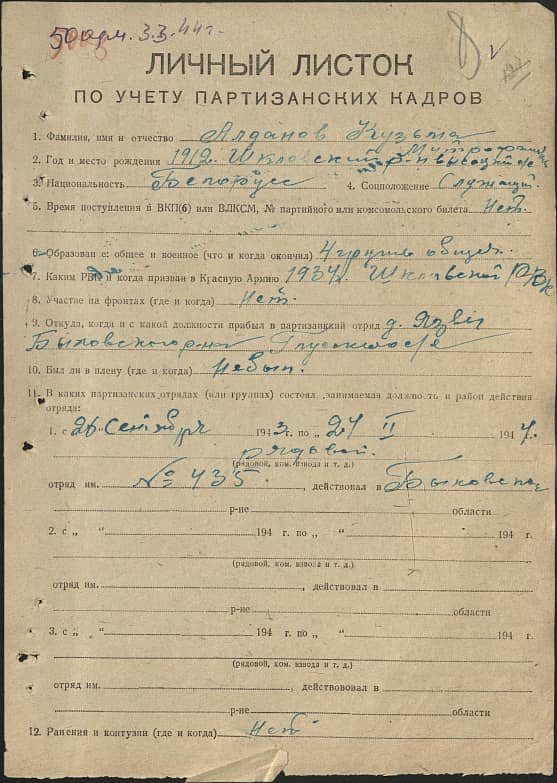 50 арм. 3.3.44 г.
ЛИЧНЫЙ ЛИСТОК
ПО УЧЕТУ ПАРТИЗАНСКИХ КАДРОВ
1. Фамилия, имя и отчество Алданов Кузьма
2. Год и место рождения 1912. Шкловский р-н
3. Национальность Белорусс 4. Соцположение Служащий
5. Время поступления в ВКП(б) или ВЛКСМ, № партийного или комсомольского билета Нет.
6. Образование: общее и военное (что и когда окончил) 4 группы общее.
7. Каким РВК и когда призван в Красную Армию 1934 г. Шкловский РВК
8. Участие на фронтах (где и когда) Нет.
9. Откуда, когда и с какой должности прибыл в партизанский отряд д.
10. Был ли в плену (где и когда) Небыл.
11. В каких партизанских отрядах (или группах) состоял, занимаемая должность и район действия
отряда:
1. с 26 Сентября 1943 г. по „ 24 II 1944 г.
рядовой.
(рядовой, ком. взвода и т. д.)
отряд им. № 435. , действовал в
р-не области
2. с „ “ 194 г. по „ “ 194 г.
(рядовой, ком. взвода и т. д.)
отряд им. , действовал в
р-не области
3. с „ “ 194 г. по „ “ 194 г.
(рядовой, ком. взвода и т. д.)
отряд им. , действововал в
р-не области
12. Ранения и контузии (где и когда) Нет